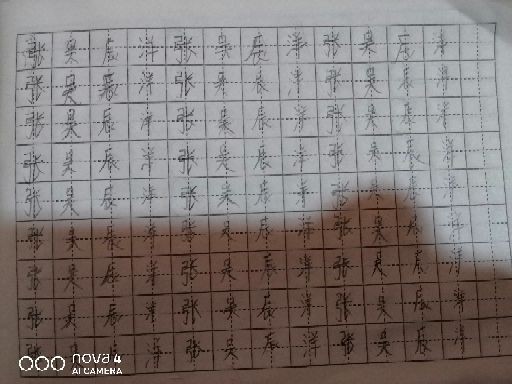 张昊辰洋张昊辰洋张昊辰洋
张昊辰洋张昊辰洋张昊辰洋
张昊辰洋张昊辰洋张昊辰洋
张昊辰洋张昊辰洋张昊辰洋
张昊辰洋张昊辰洋张昊辰洋
张昊辰洋张昊辰洋张昊辰洋
张昊辰洋张昊辰洋张昊辰洋
张昊辰洋张昊辰洋张昊辰洋
张昊辰洋张昊辰洋张昊辰洋
nova 4
AI CAMERA